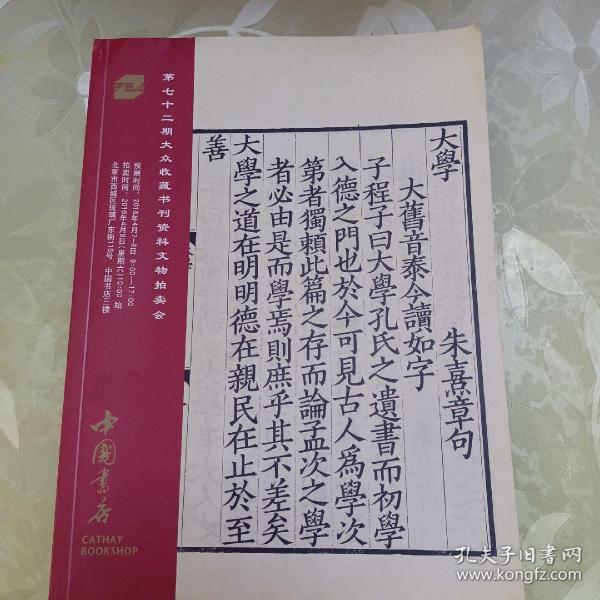 第七十二期大众收藏书刊资料文物拍卖会
预展时间：2016年4月7-8日 9:00—17:00
拍卖时间：2016年4月9日(星期六)10:00 始
北京市西城区琉璃厂东街115号 中国书店三楼
中國書店
CATHAY
BOOKSHOP
大學 朱熹章句
大舊音泰今讀如字
子程子曰大學孔氏之遺書而初學
入德之門也於今可見古人為學次
第者獨賴此篇之存而論孟次之學
者必由是而學焉則庶乎其不差矣
大學之道在明明德在親民在止於至
善
孔夫子旧书网
www.kongfz.com